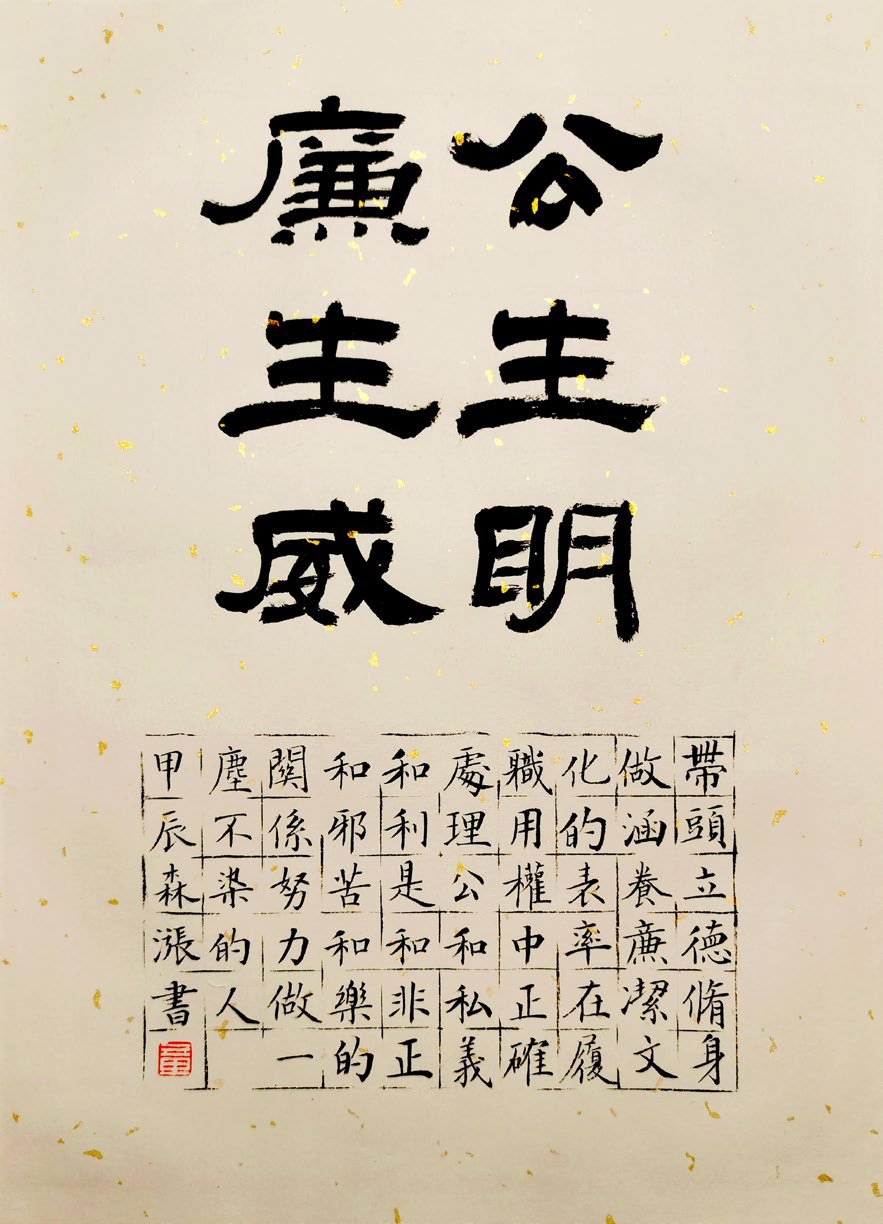 公生明
廉生威
帶頭立德脩身
做涵養廉潔文
化的表率在履
職用權中正確
處理公和私義
和利是和非正
和邪苦和樂的
關係努力做一
塵不染的人
甲辰森漲書